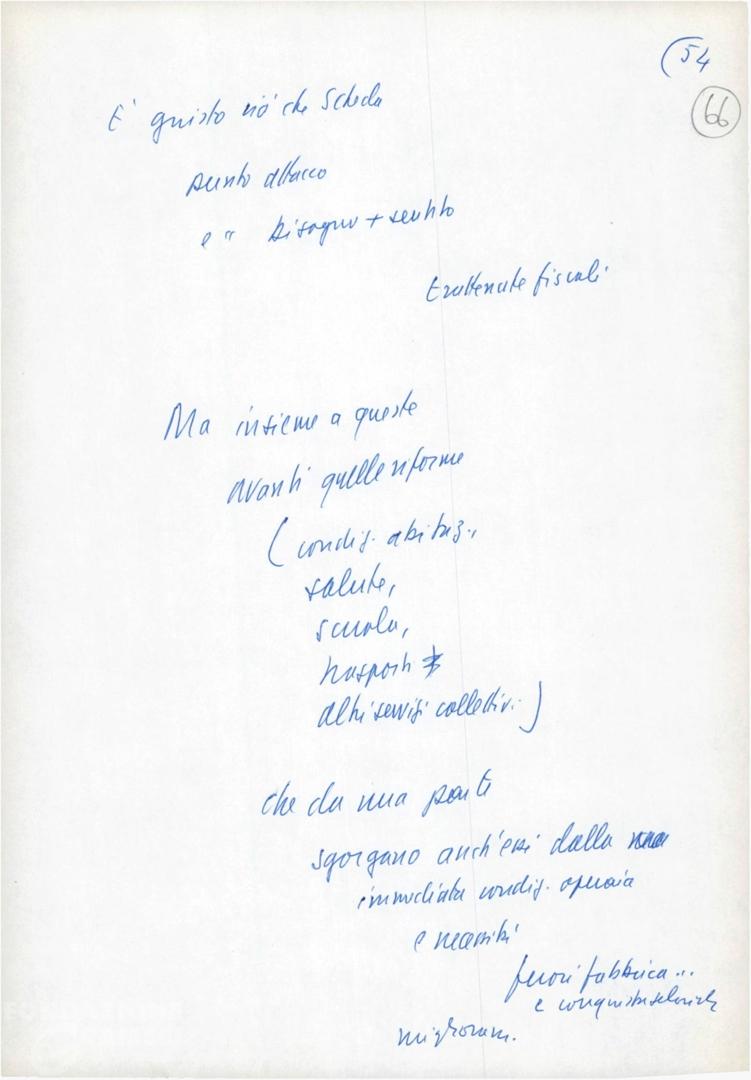 (54
66
E' giusto ciò che Scheda
punto attacco
e " bisogno + sentito
trattenute fiscali
Ma insieme a queste
avanti quelle riforme
(condiz. abitaz.,
salute,
scuola,
trasporti
altri servizi collettivi)
che da una parte
sgorgano anch'essi dalla
immediata condiz. operaia
e necessità
fuori fabbrica...
e conquiste
miglioram.